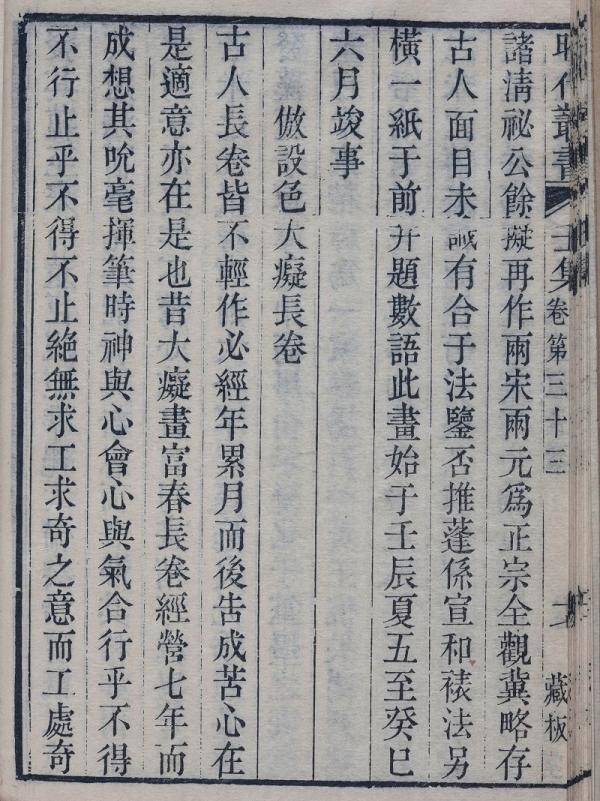 昭代叢書 壬集卷第三十三 藏板
諸淸祕公餘擬再作兩宋兩元爲正宗全觀冀略存
古人面目未識有合于法鑒否推蓬係宣和裱法另
橫一紙于前幷題數語此畫始于壬辰夏五至癸巳
六月竣事
倣設色大癡長卷
古人長卷皆不輕作必經年累月而後告成苦心在
是適意亦在是也昔大癡畫富春長卷經營七年而
成想其吮毫揮筆時神與心會心與氣合行乎不得
不行止乎不得不止絶無求工求奇之意而工處奇